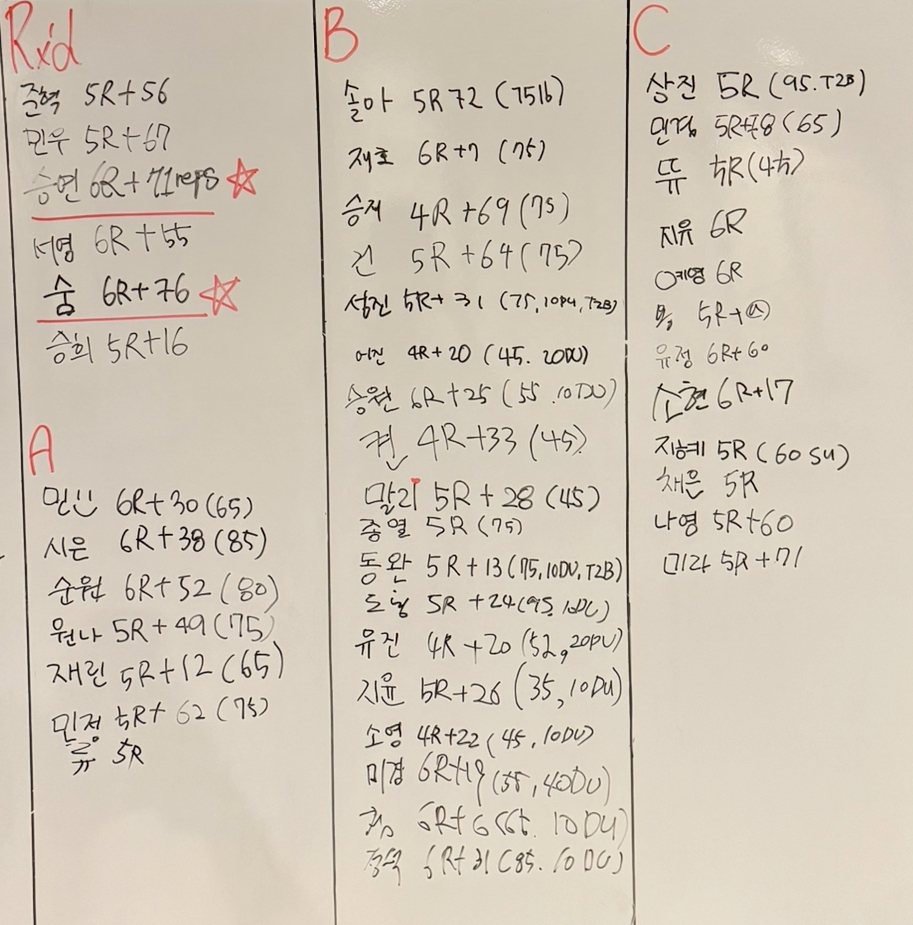 Rx'd
준혁 5R+56
민우 5R+67
승연 6R+71reps
서영 6R+55
숨 6R+76
승희 5R+16
A
민신 6R+30(65)
시은 6R+38(85)
순원 6R+52(80)
원나 5R+49(75)
재린 5R+12(65)
민정 5R+62(75)
5R
B
솔아 5R72(75lb)
재호 6R+7(75)
승재 4R+69(75)
건 5R+64(75)
성진 5R+31(75,10PU,T2B)
어진 4R+20(45.20DU)
승완 6R+25(55.10DU)
켠 4R+33(45)
말리 5R+28(45)
종열 5R(75)
동완 5R+13(75,10DU,T2B)
도형 5R+24(95.10DU)
유진 4R+20(52,20PU)
지윤 5R+26(35,10DU)
소영 4R+22(45,10DU)
미경 6R+19(35,40DU)
6R+6(65.10DU)
경숙 6R+31(85.10DU)
C
상진 5R(95.T2B)
민정 (65)
뜌 5R(45)
지유 6R
예영 6R
봉 5R+
유정 6R+60
소현 6R+17
지혜 5R(60SU)
채은 5R
나영 5R+60
미라 5R+71